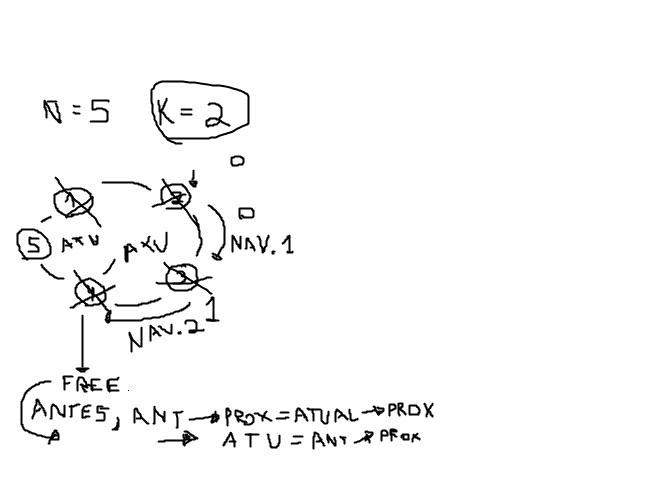 N = 5 K = 2
1
5 ATU ATU NAV. 1
4 1
NAV. 2
FREE
ANTES, ANT → PROX = ATUAL → PROX
→ ATU = ANT → PROX